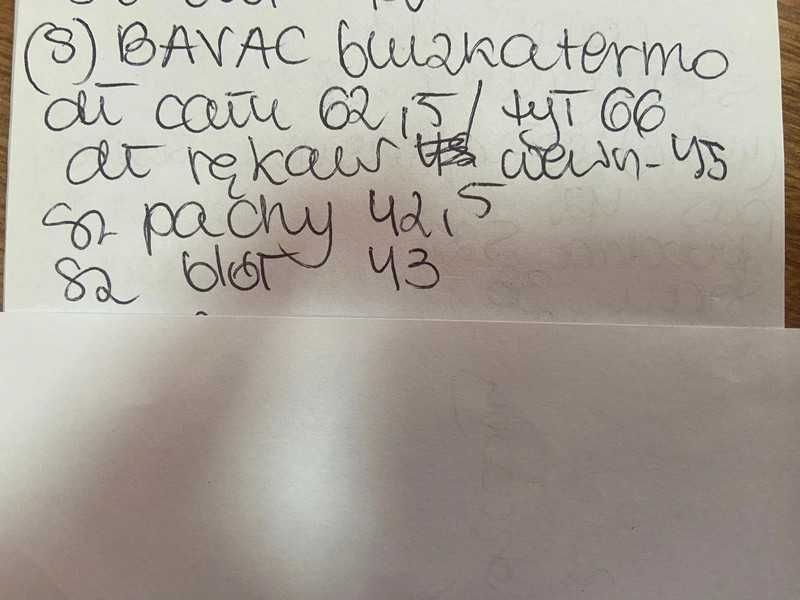 (S) BAVAC bluzka termo
dł całk 62,5 / tył 66
dł rękaw wewn - 45
sz pachy 42,5
sz dół 43